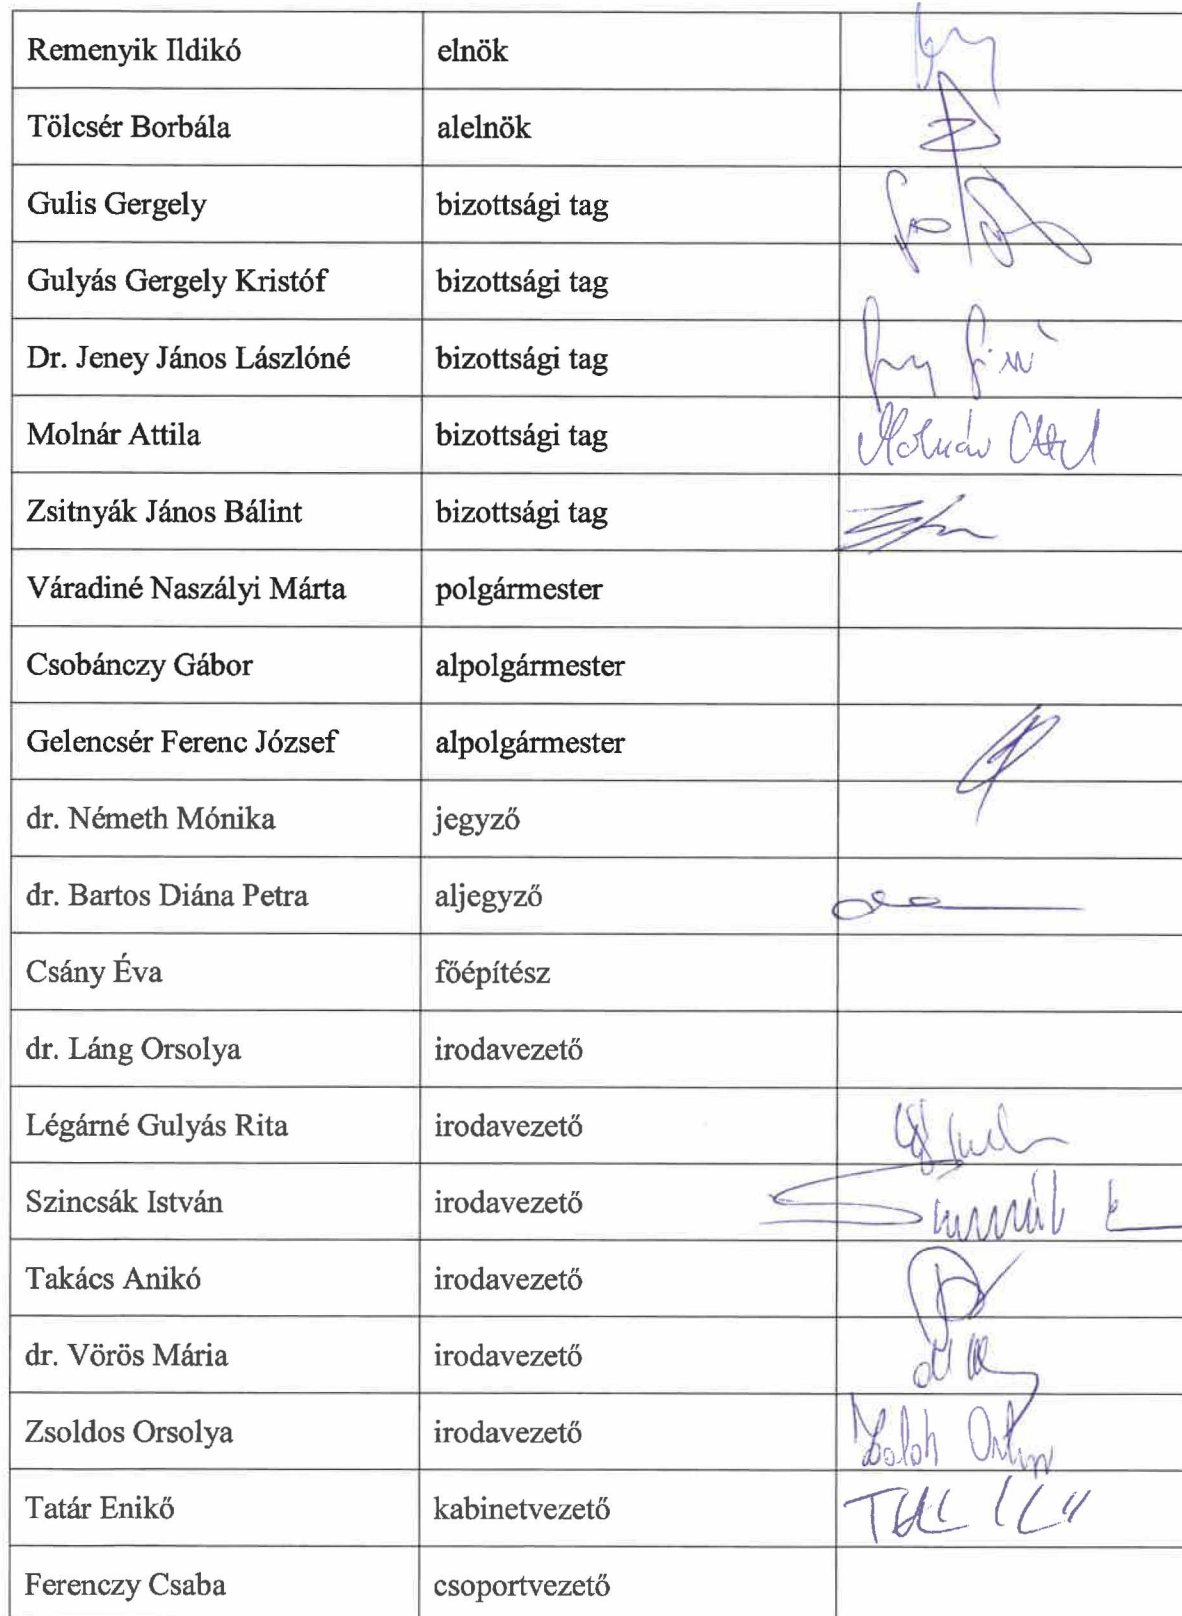 Remenyik Ildikó elnök
Tölcsér Borbála alelnök
Gulis Gergely bizottsági tag
Gulyás Gergely Kristóf bizottsági tag
Dr. Jeney János Lászlóné bizottsági tag
Molnár Attila bizottsági tag Molnár
Zsitnyák János Bálint bizottsági tag
Váradiné Naszályi Márta polgármester
Csobánczy Gábor alpolgármester
Gelencsér Ferenc József alpolgármester
dr. Németh Mónika jegyző
dr. Bartos Diána Petra aljegyző
Csány Éva főépítész
dr. Láng Orsolya irodavezető
Légárné Gulyás Rita irodavezető
Szincsák István irodavezető
Takács Anikó irodavezető
dr. Vörös Mária irodavezető
Zsoldos Orsolya irodavezető
Tatár Enikő kabinetvezető
Ferenczy Csaba csoportvezető